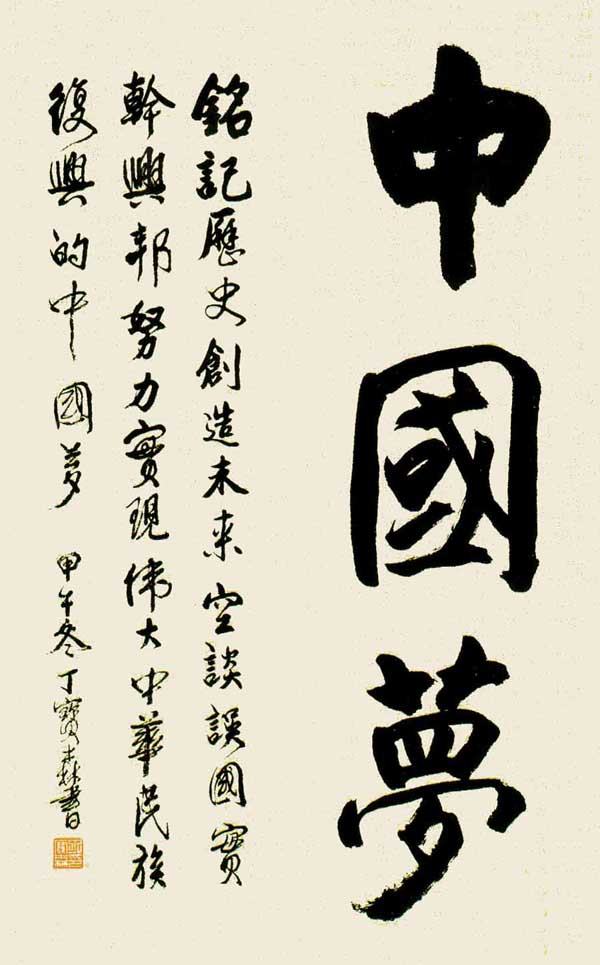 中國夢
銘記歷史創造未来空談誤國實
幹興邦努力實現偉大中華民族
復興的中國夢 甲午冬丁寶森書